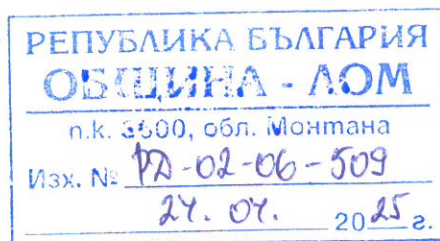 РЕПУБЛИКА БЪЛГАРИЯ
ОБЩИНА - ЛОМ
п.к. 3600, обл. Монтана
Изх. № РД-02-06-509
24. 04. 2025 г.